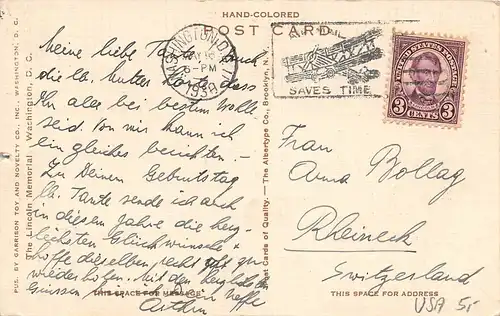 HAND-COLORED
POST CARD
WASHINGTON, D.C.
NOV 16
6-PM
1938
AIR MAIL
SAVES TIME
UNITED STATES POSTAGE
3 CENTS 3
Meine liebe Tante, auch
die lb. Mutter hörte, dass
Ihr alles bei bestem Wohle
seid. Von mir kann ich
ein gleiches berichten. –
Zu Deinem Geburtstag
lb. Tante sende ich auch
in diesem Jahre die herz-
lichsten Glückwünsche &
hoffe dieselben recht oft zu
wiederholen. Mit den herzlichsten
Grüssen Neffe
Arthur
THIS SPACE FOR MESSAGE
Frau
Anna Bollag
Rheineck
Switzerland
THIS SPACE FOR ADDRESS
USA 5.-
PUB. BY GARRISON TOY AND NOVELTY CO., INC., WASHINGTON, D. C.
The Lincoln Memorial Washington, D. C.
Post Cards of Quality. — The Albertype Co., Brooklyn, N.